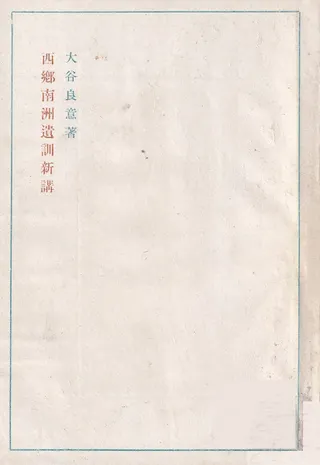 大谷良意著
西郷南洲遺訓新講